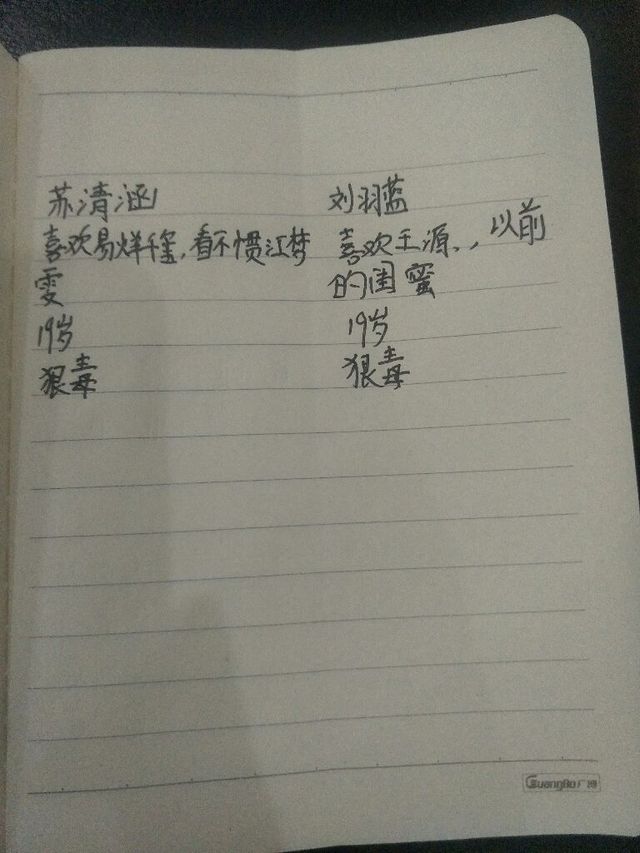 苏清涵
喜欢易烊千玺,看不惯江梦
雯
19岁
狠毒
刘羽蓝
喜欢王源、,以前
的闺蜜
19岁
狠毒
GuangBo广博